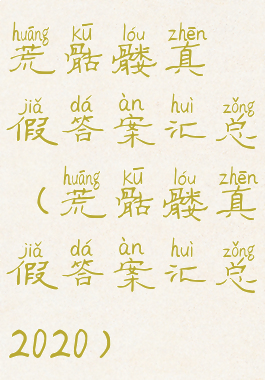 huāng kū lóu zhēn
荒骷髅真
jiǎ dá àn huì zǒng
假答案汇总
huāng kū lóu zhēn
（荒骷髅真
jiǎ dá àn huì zǒng
假答案汇总
2020）